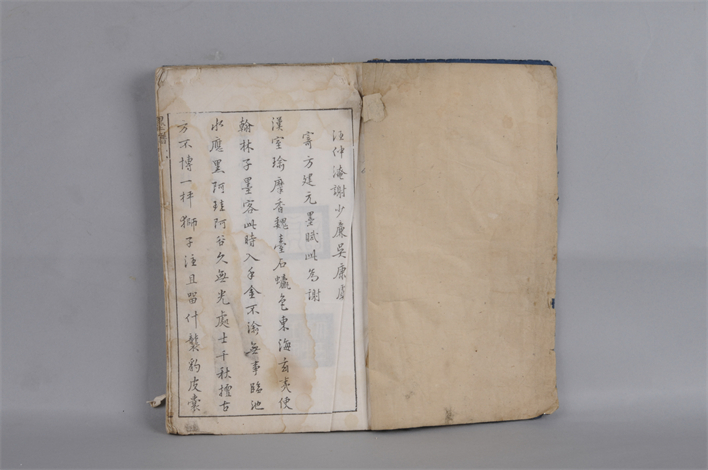 汪仲淹謝少廉吳康虞
寄方建元墨賦此為謝
漢室瑜麋香魏臺石螺色東海玄夫使
翰林子墨客此時入手金不渝無事臨池
水應黑阿珪阿谷久無光處士千秋擅古
方不博一枰獅子注且留什襲豹皮囊